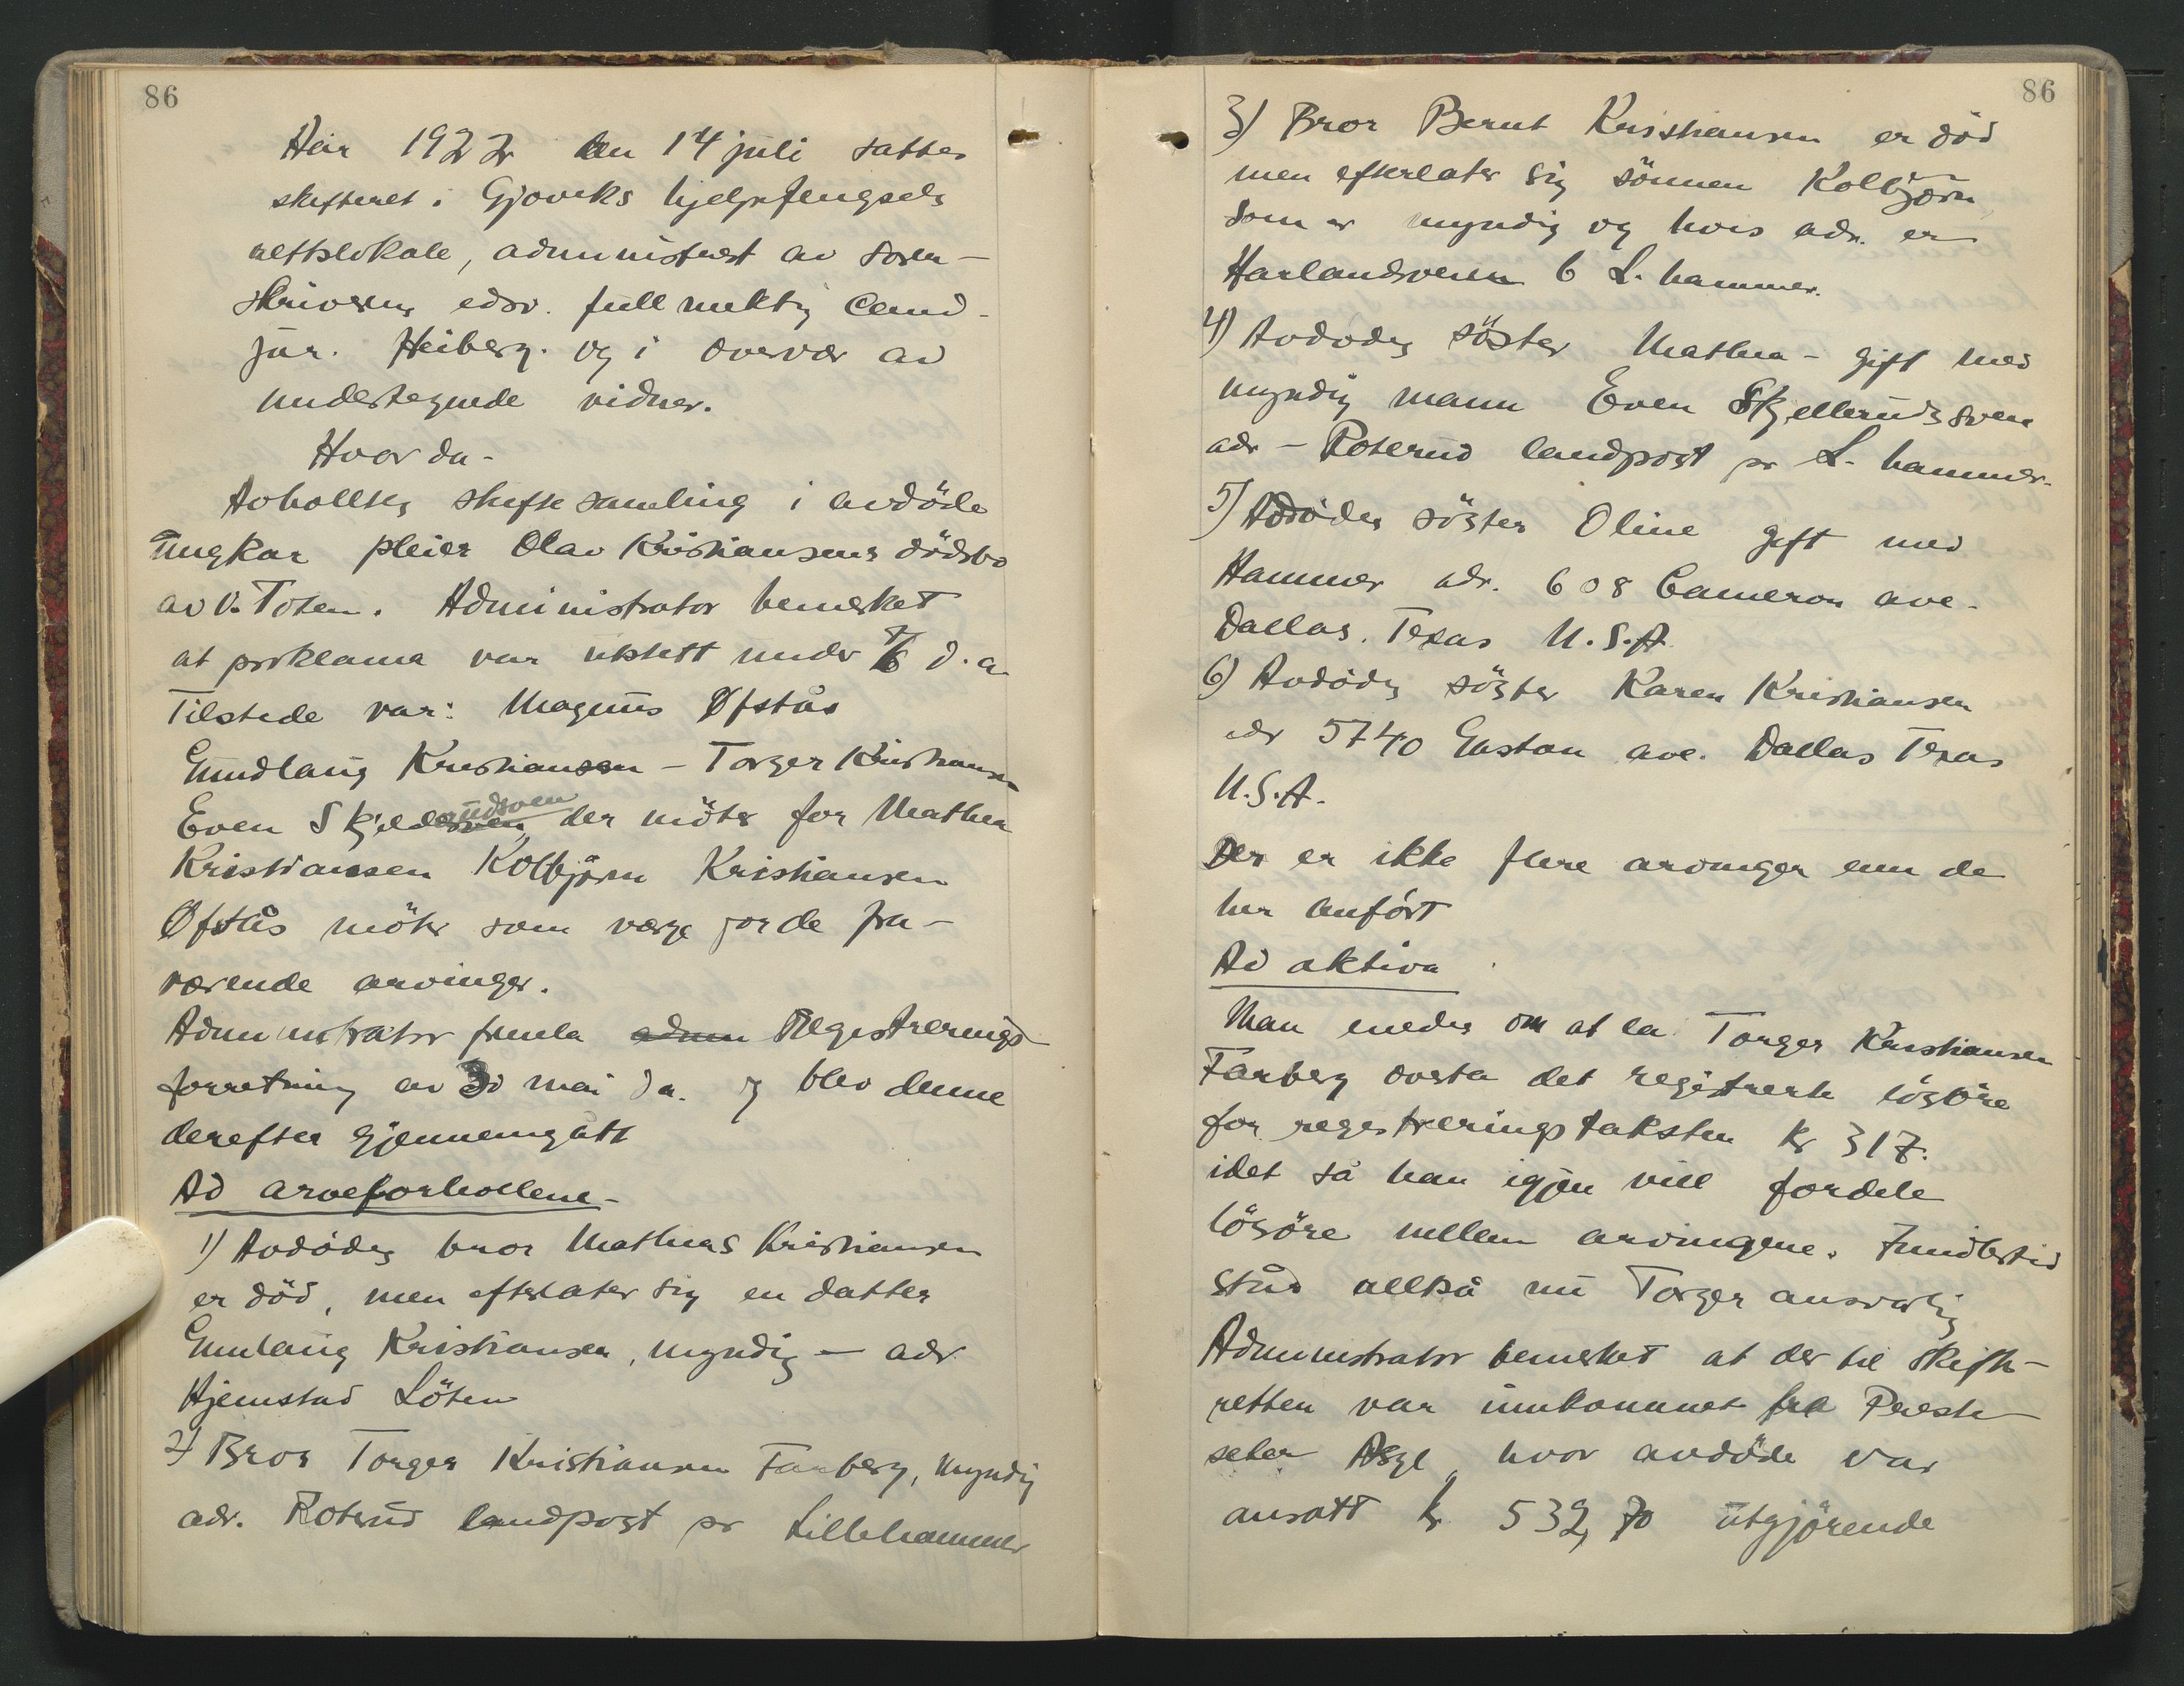 86
Aar 1922 den 14 juli sattes
skifteret i Gjøviks hjelpefengsels
rettslokale, administrert av soren-
skriverens edsv. fullmektig Cand.
jur. Heiberg. og i overvær av
undertegnede vidner.
Hvor da -
Avholltes skiftesamling i avdöde
Ungkar pleier Olav Kristiansens dödsbo
av V. Toten. Administrator bemerket
at proklama var utstett under 7/6 d.a.
Tilstede var: Magnus Øfstås
Gundlaug Kristiansen - Torger Kristiansen
Even Skjelderudsven der möter for Mathea
Kristiansen Kolbjörn Kristiansen
Øfstås möter som verge for de fra-
værende arvinger.
Administrator fremla adm Registrerings-
forretning av 30 mai d.a. og blev denne
derefter gjennemgått
Ad arveforhollene -
1) Avdödes bror Mathias Kristiansen
er död, men efterlater sig en datter
Gunlaug Kristiansen, myndig - adr.
Hjemstad Löten
2) Bror Torger Kristiansen Farberg, myndig
adr. Roterud landpost pr Lillehammer
86
3) Bror Bernt Kristiansen er död
men efterlater sig sönnen Kolbjörn
som er myndig og hvis adr. er
Harlandsveien 6 L. hammer.
4) Avdödes söster Mathea - gift med
myndig mann Even Skjellerudsven
adr - Roterud landpost pr L. hammer.
5) Avdödes söster Oline gift med
Hammer adr. 608 Cameron ave.
Dallas. Texas U.S.A.
6) Avdödes söster Karen Kristiansen
adr 5740 Gaston ave. Dallas Texas
U.S.A.
Der er ikke flere arvinger enn de
her anfört
Ad aktiva
Man enedes om at la Torger Kristiansen
Farberg overta det registrerte lösöre
for registreringstaksten kr 317.
idet så han igjen vill fordele
lösöre mellem arvingene. Imidlertid
står alltså nu Torger ansvarlig
Administrator bemerket at der til skifte-
retten var innkommet fra Preste-
seter Asyl, hvor avdöde var
ansatt kr 532,70 utgjörende